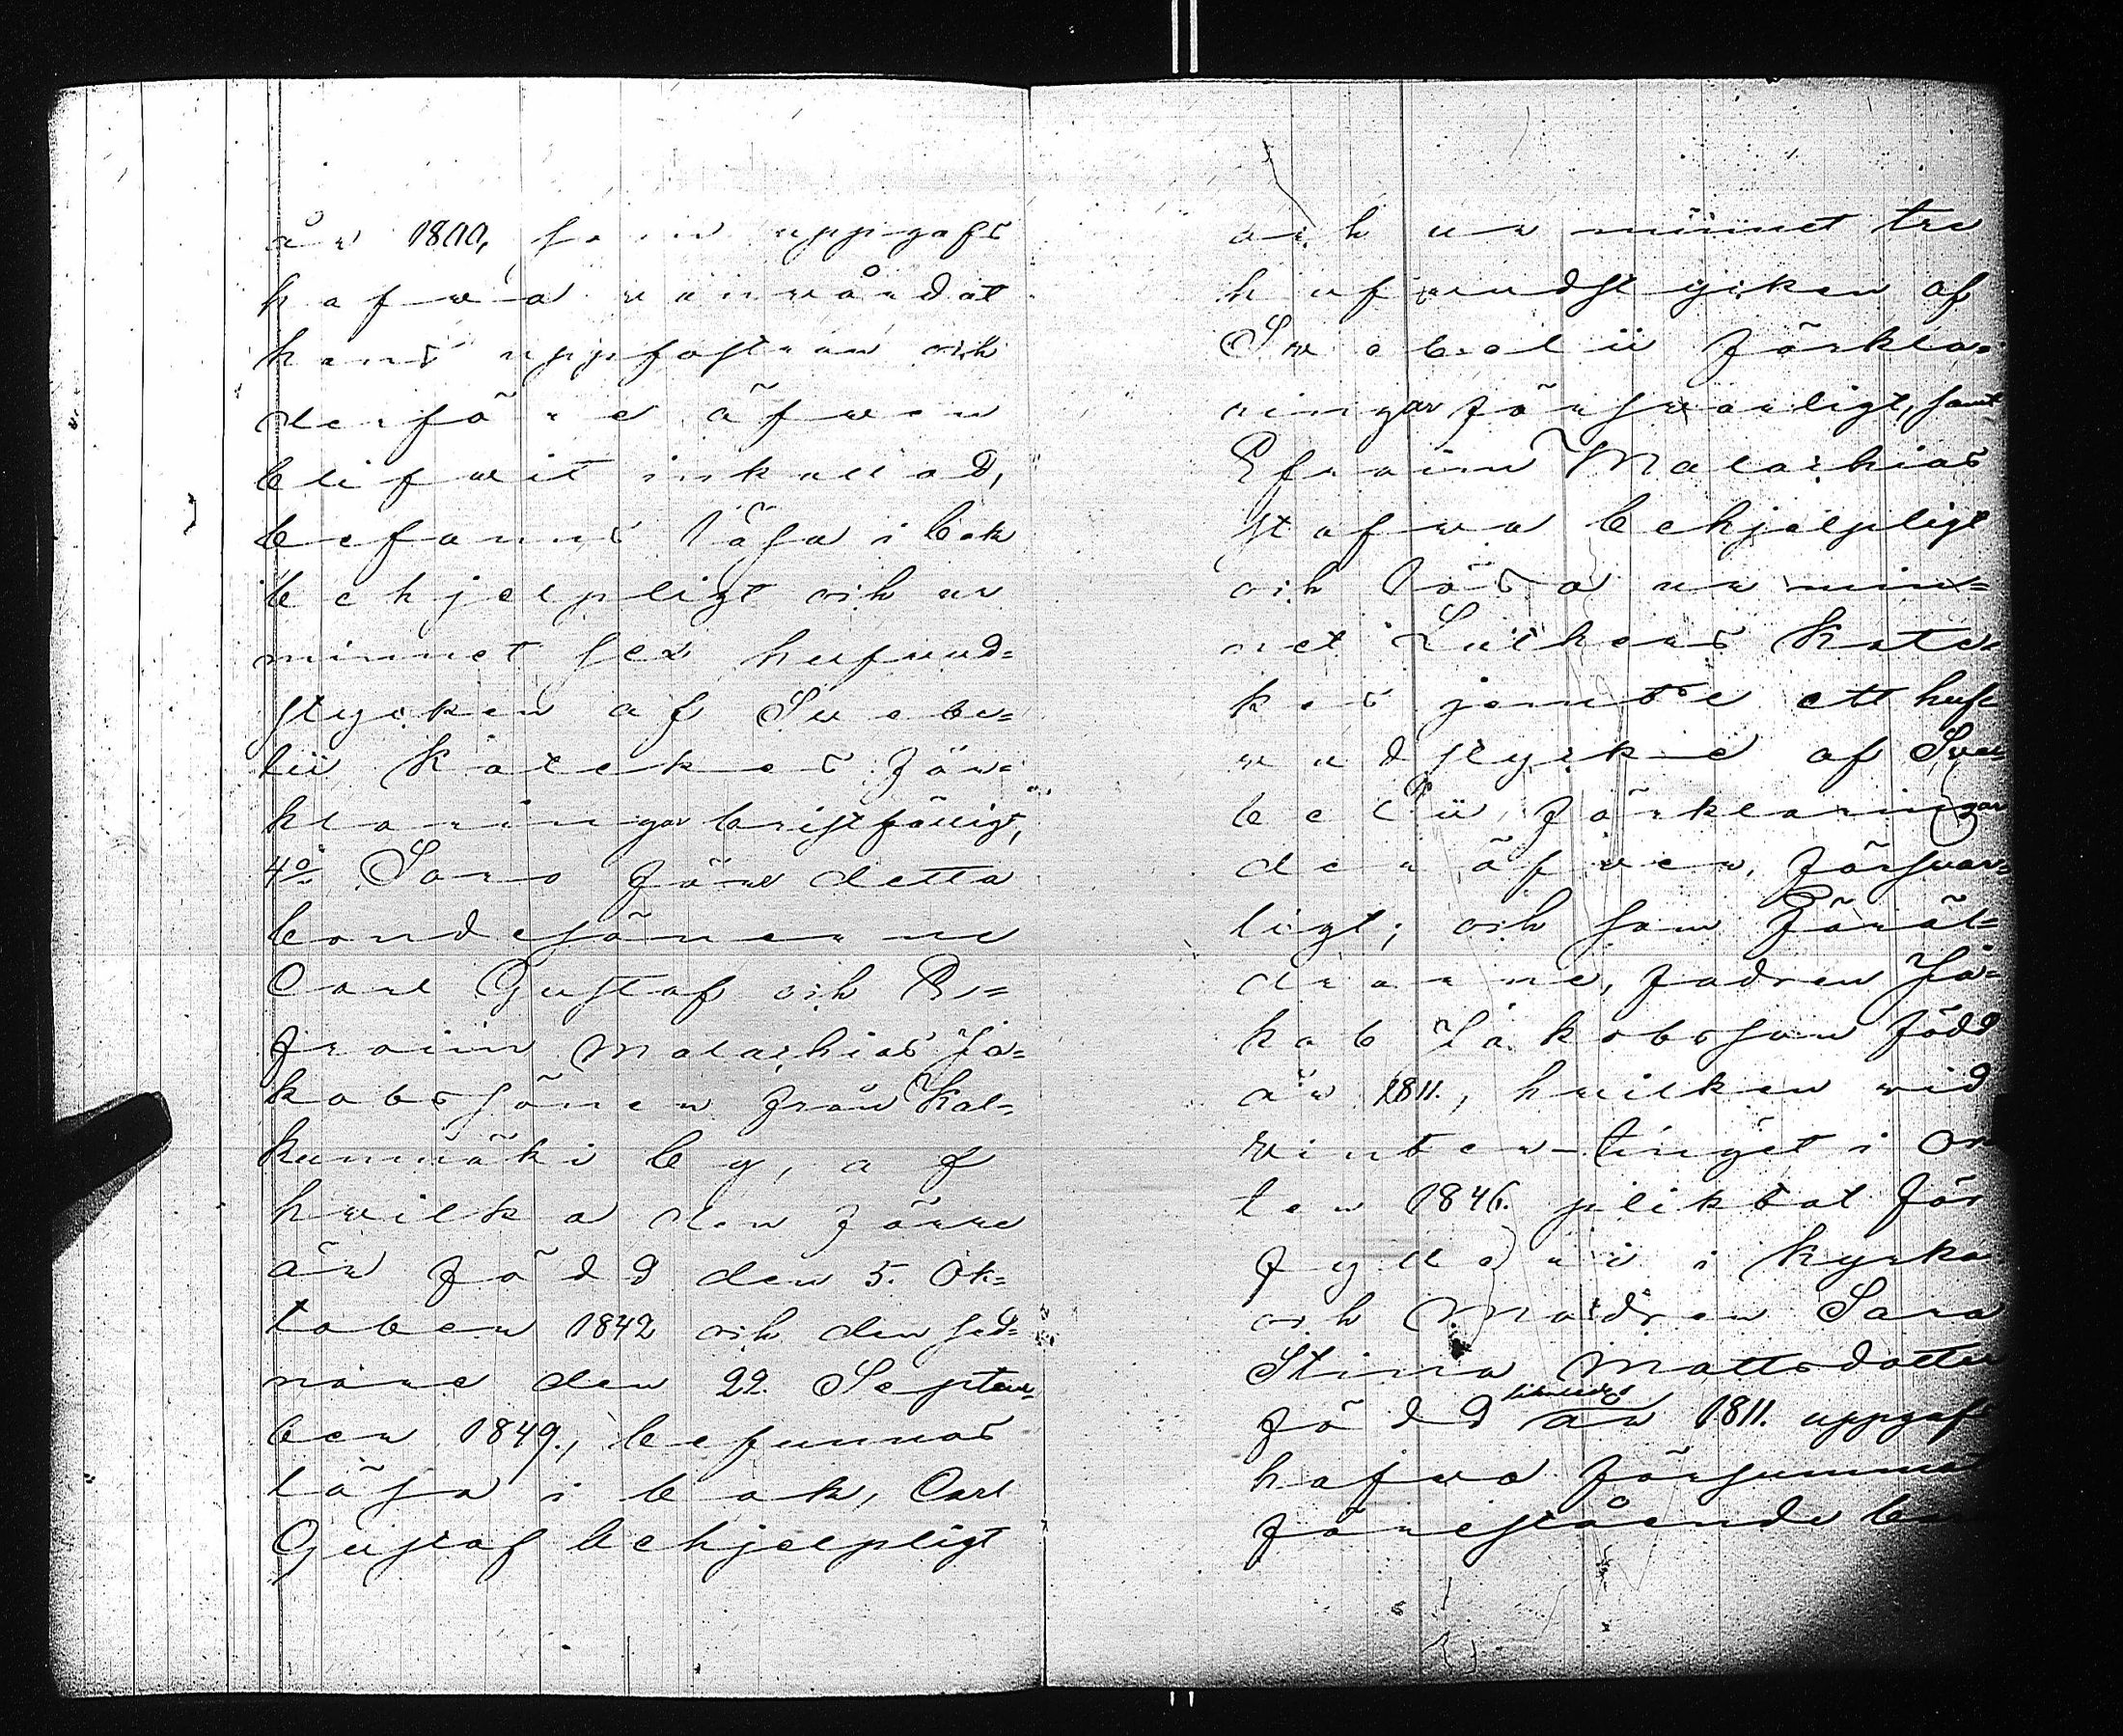 år 1800, som uppgafs
hafwa wanwårdat
hans uppfostran och
derföre äfwen
blifwit inkallad,
befanns läsa i bok
behjelpligt och ur
minnet sex hufvud=
stycken af Svebe=
lii Katekes för=
klaringar bristfälligt,
4o Sans före detta
bondesönerne
Carl Gustaf och E=
fraim Malachias Ja=
kobssöner från Kal=
kunmäki by, af
hwilka den förre
är född den 5. Ok=
tober 1842 och den sed=
nare den 22. Septem=
ber 1849., befunnos
läsa i bok, Carl
Gustaf behjelpligt
och ur minnet tre
hufvudstycken af
Swebelii förkla=
ringar försvarligt, samt
Efraim Malachias
stafva behjelpligt
och läsa ur min=
net Luthers Kate=
kes jemte ett huf=
vudstycke af Sve=
belii förklaringar
deröfver, försvar=
ligt; och som föräl=
drarne, fadren Ja=
kob Jakobsson född
år 1811., hvilken wid
winter-tinget i Or
ten 1846. pliktat för
fylleri i kyrka
och modren Sara
Stina Mattsdotter
född likaledes år 1811. uppgaf
hafva försummat
förestående